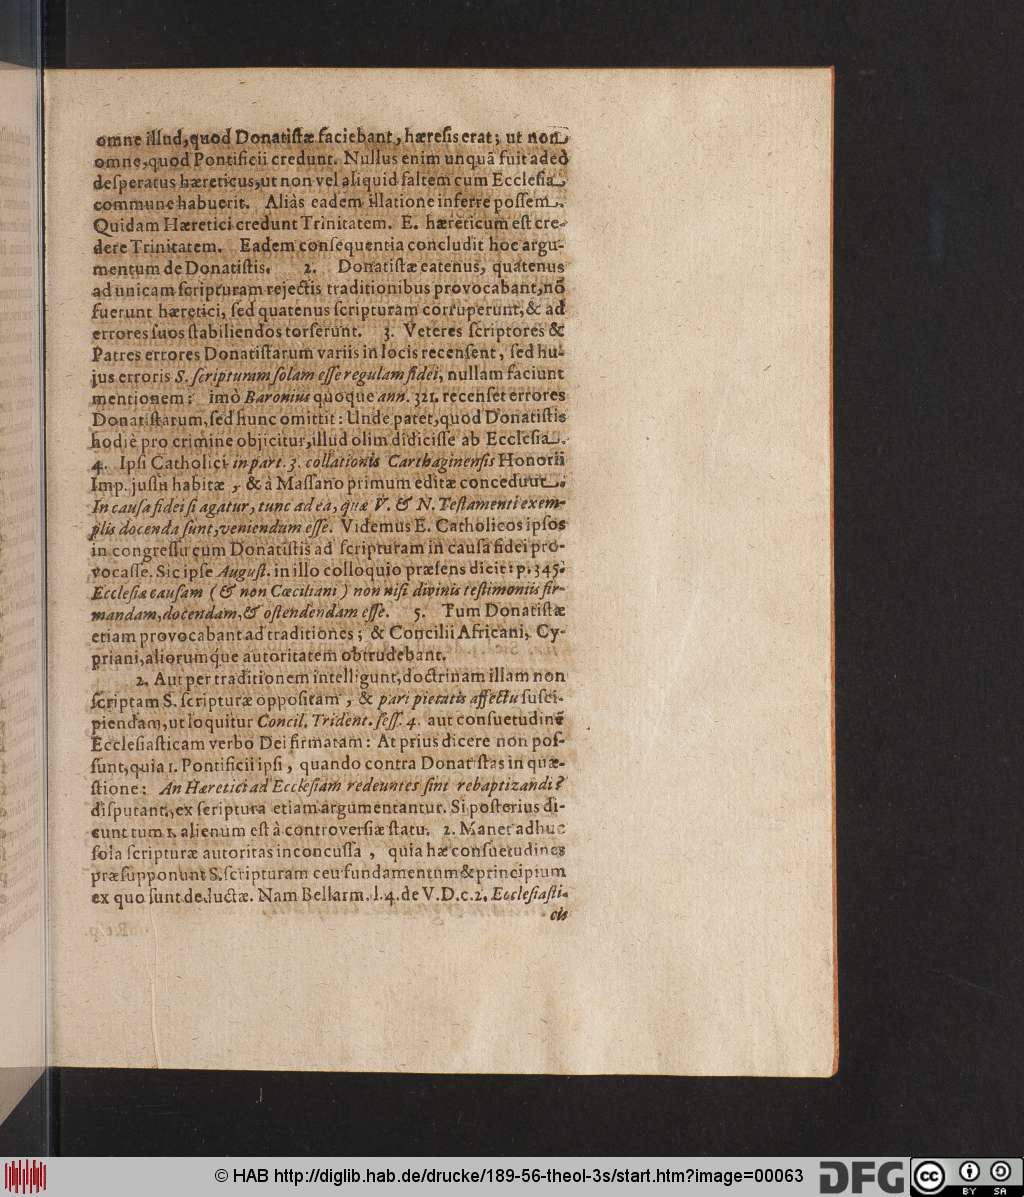 omne illud, quod Donatiſtæ faciebant, hæreſis erat; ut non
omne, quod Pontificii credunt. Nullus enim unquā fuit adeò
deſperatus hæreticus, ut non vel aliquid ſaltem cum Eccleſia
commune habuerit. Aliàs eadem illatione inferre poſſem.
Quidam Hæretici credunt Trinitatem. E. hæreticum eſt cre-
dere Trinitatem. Eadem conſequentia concludit hoc argu-
mentum de Donatiſtis. 2. Donatiſtæ eatenus, quatenus
ad unicam ſcripturam rejectis traditionibus provocabant, nō
fuerunt hæretici, ſed quatenus ſcripturam corruperunt, & ad
errores ſuos ſtabiliendos torſerunt. 3. Veteres ſcriptores &
Patres errores Donatiſtarum variis in locis recenſent, ſed hu-
jus erroris S. ſcripturam ſolam eſſe regulam fidei, nullam faciunt
mentionem: imò Baronius quoque ann. 321. recenſet errores
Donatiſtarum, ſed hunc omittit: Unde patet, quod Donatiſtis
hodiè pro crimine objicitur, illud olim didiciſſe ab Eccleſia.
4. Ipſi Catholici in part. 3. collationis Carthaginenſis Honorii
Imp. juſſu habitæ, & à Maſſano primum editæ concedunt.
In cauſa fidei ſi agatur, tunc ad ea, quæ V. & N. Teſtamenti exem-
plis docenda ſunt, veniendum eſſe. Videmus E. Catholicos ipſos
in congreſſu cum Donatiſtis ad ſcripturam in cauſa fidei pro-
vocaſſe. Sic ipſe Auguſt. in illo colloquio præſens dicit: p. 345.
Eccleſiæ cauſam (& non Cæciliani) non niſi divinis teſtimoniis fir-
mandam, docendam, & oſtendendam eſſe. 5. Tum Donatiſtæ
etiam provocabant ad traditiones; & Concilii Africani, Cy-
priani, aliorumq́ue autoritatem obtrudebant.
2. Aut per traditionem intelligunt, doctrinam illam non
ſcriptam S. ſcripturæ oppoſitam, & pari pietatis affectu ſuſci-
piendam, ut loquitur Concil. Trident. ſeſſ. 4. aut conſuetudinē
Eccleſiaſticam verbo Dei firmatam: At prius dicere non poſ-
ſunt, quia 1. Pontificii ipſi, quando contra Donatiſtas in quæ-
ſtione: An Hæretici ad Eccleſiam redeuntes ſint rebaptizandi?
diſputant, ex ſcriptura etiam argumentantur. Si poſterius di-
cunt tum 1. alienum eſt à controverſiæ ſtatu. 2. Manet adhuc
ſola ſcripturæ autoritas inconcuſſa, quia hæ conſuetudines
præſupponunt S. ſcripturam ceu fundamentum & principium
ex quo ſunt deductæ. Nam Bellarm. l. 4. de V. D. c. 2. Eccleſiaſti-
cis
© HAB http://diglib.hab.de/drucke/189-56-theol-3s/start.htm?image=00063
DFG
cc
BY SA